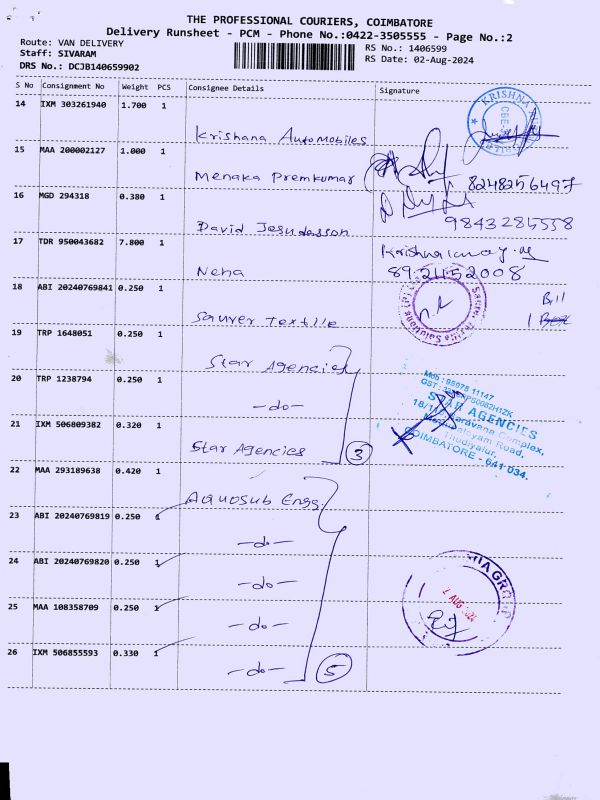 THE PROFESSIONAL COURIERS, COIMBATORE
Delivery Runsheet - PCM - Phone No.:0422-3505555 - Page No.:2
Route: VAN DELIVERY
RS No.: 1406599
Staff: SIVARAM
RS Date: 02-Aug-2024
DRS No.: DCJB140659902
S No Consignment No Weight PCS Consignee Details Signature
14 IXM 303261940 1.700 1
Krishana Automobiles
KRISHNA
15 MAA 200002127 1.000 1
Menaka Premkumar
8248256497
16 MGD 294318 0.380 1
David Jesudasson
9843285558
17 TDR 950043682 7.800 1
Neha
8921152008
18 ABI 20240769841 0.250 1
Saurer Textile
Bill
1 Box
19 TRP 1648051 0.250 1
Star Agencies
20 TRP 1238794 0.250 1
-do-
Mob : 95978 11147
STAR AGENCIES
COIMBATORE - 641 034.
21 IXM 506809382 0.320 1
Star Agencies
3
22 MAA 293189638 0.420 1
Aquosub Engg
23 ABI 20240769819 0.250 1
-do-
24 ABI 20240769820 0.250 1
-do-
2 AUG 2024
25 MAA 108358709 0.250 1
-do-
26 IXM 506855593 0.330 1
-do-
5